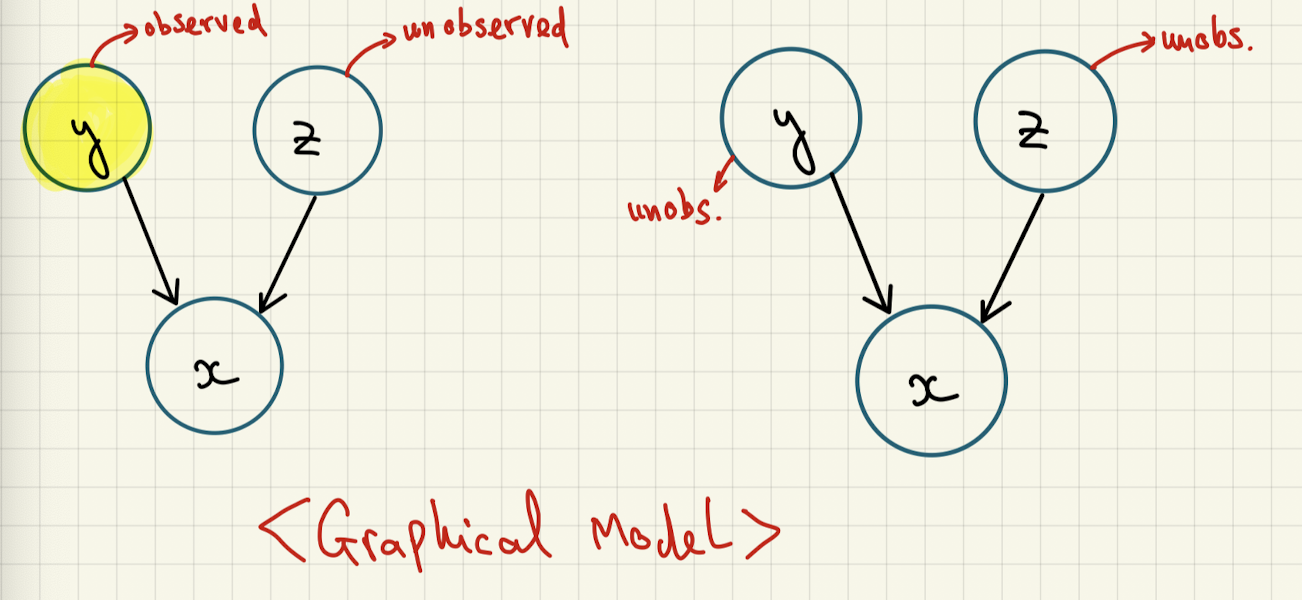 observed
unobserved
y
z
x
unobs.
y
z
unobs.
x
<Graphical Model>